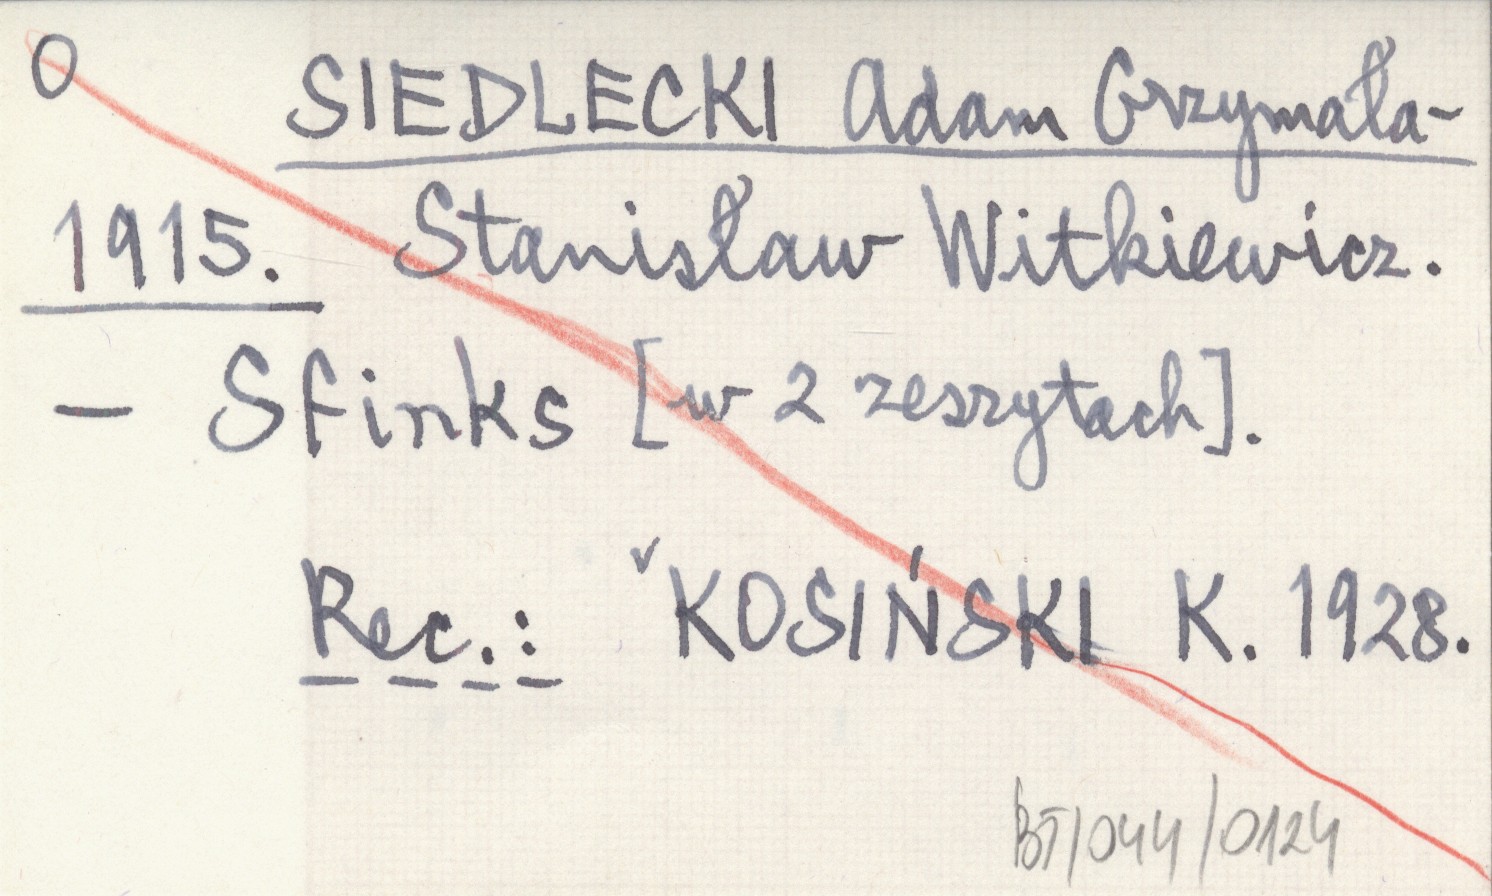 O SIEDLECKI Adam Grzymała-
1915. Stanisław Witkiewicz.
– Sfinks [w 2 zeszytach].
Rec.: ˅KOSIŃSKI K. 1928.
BT/044/0124